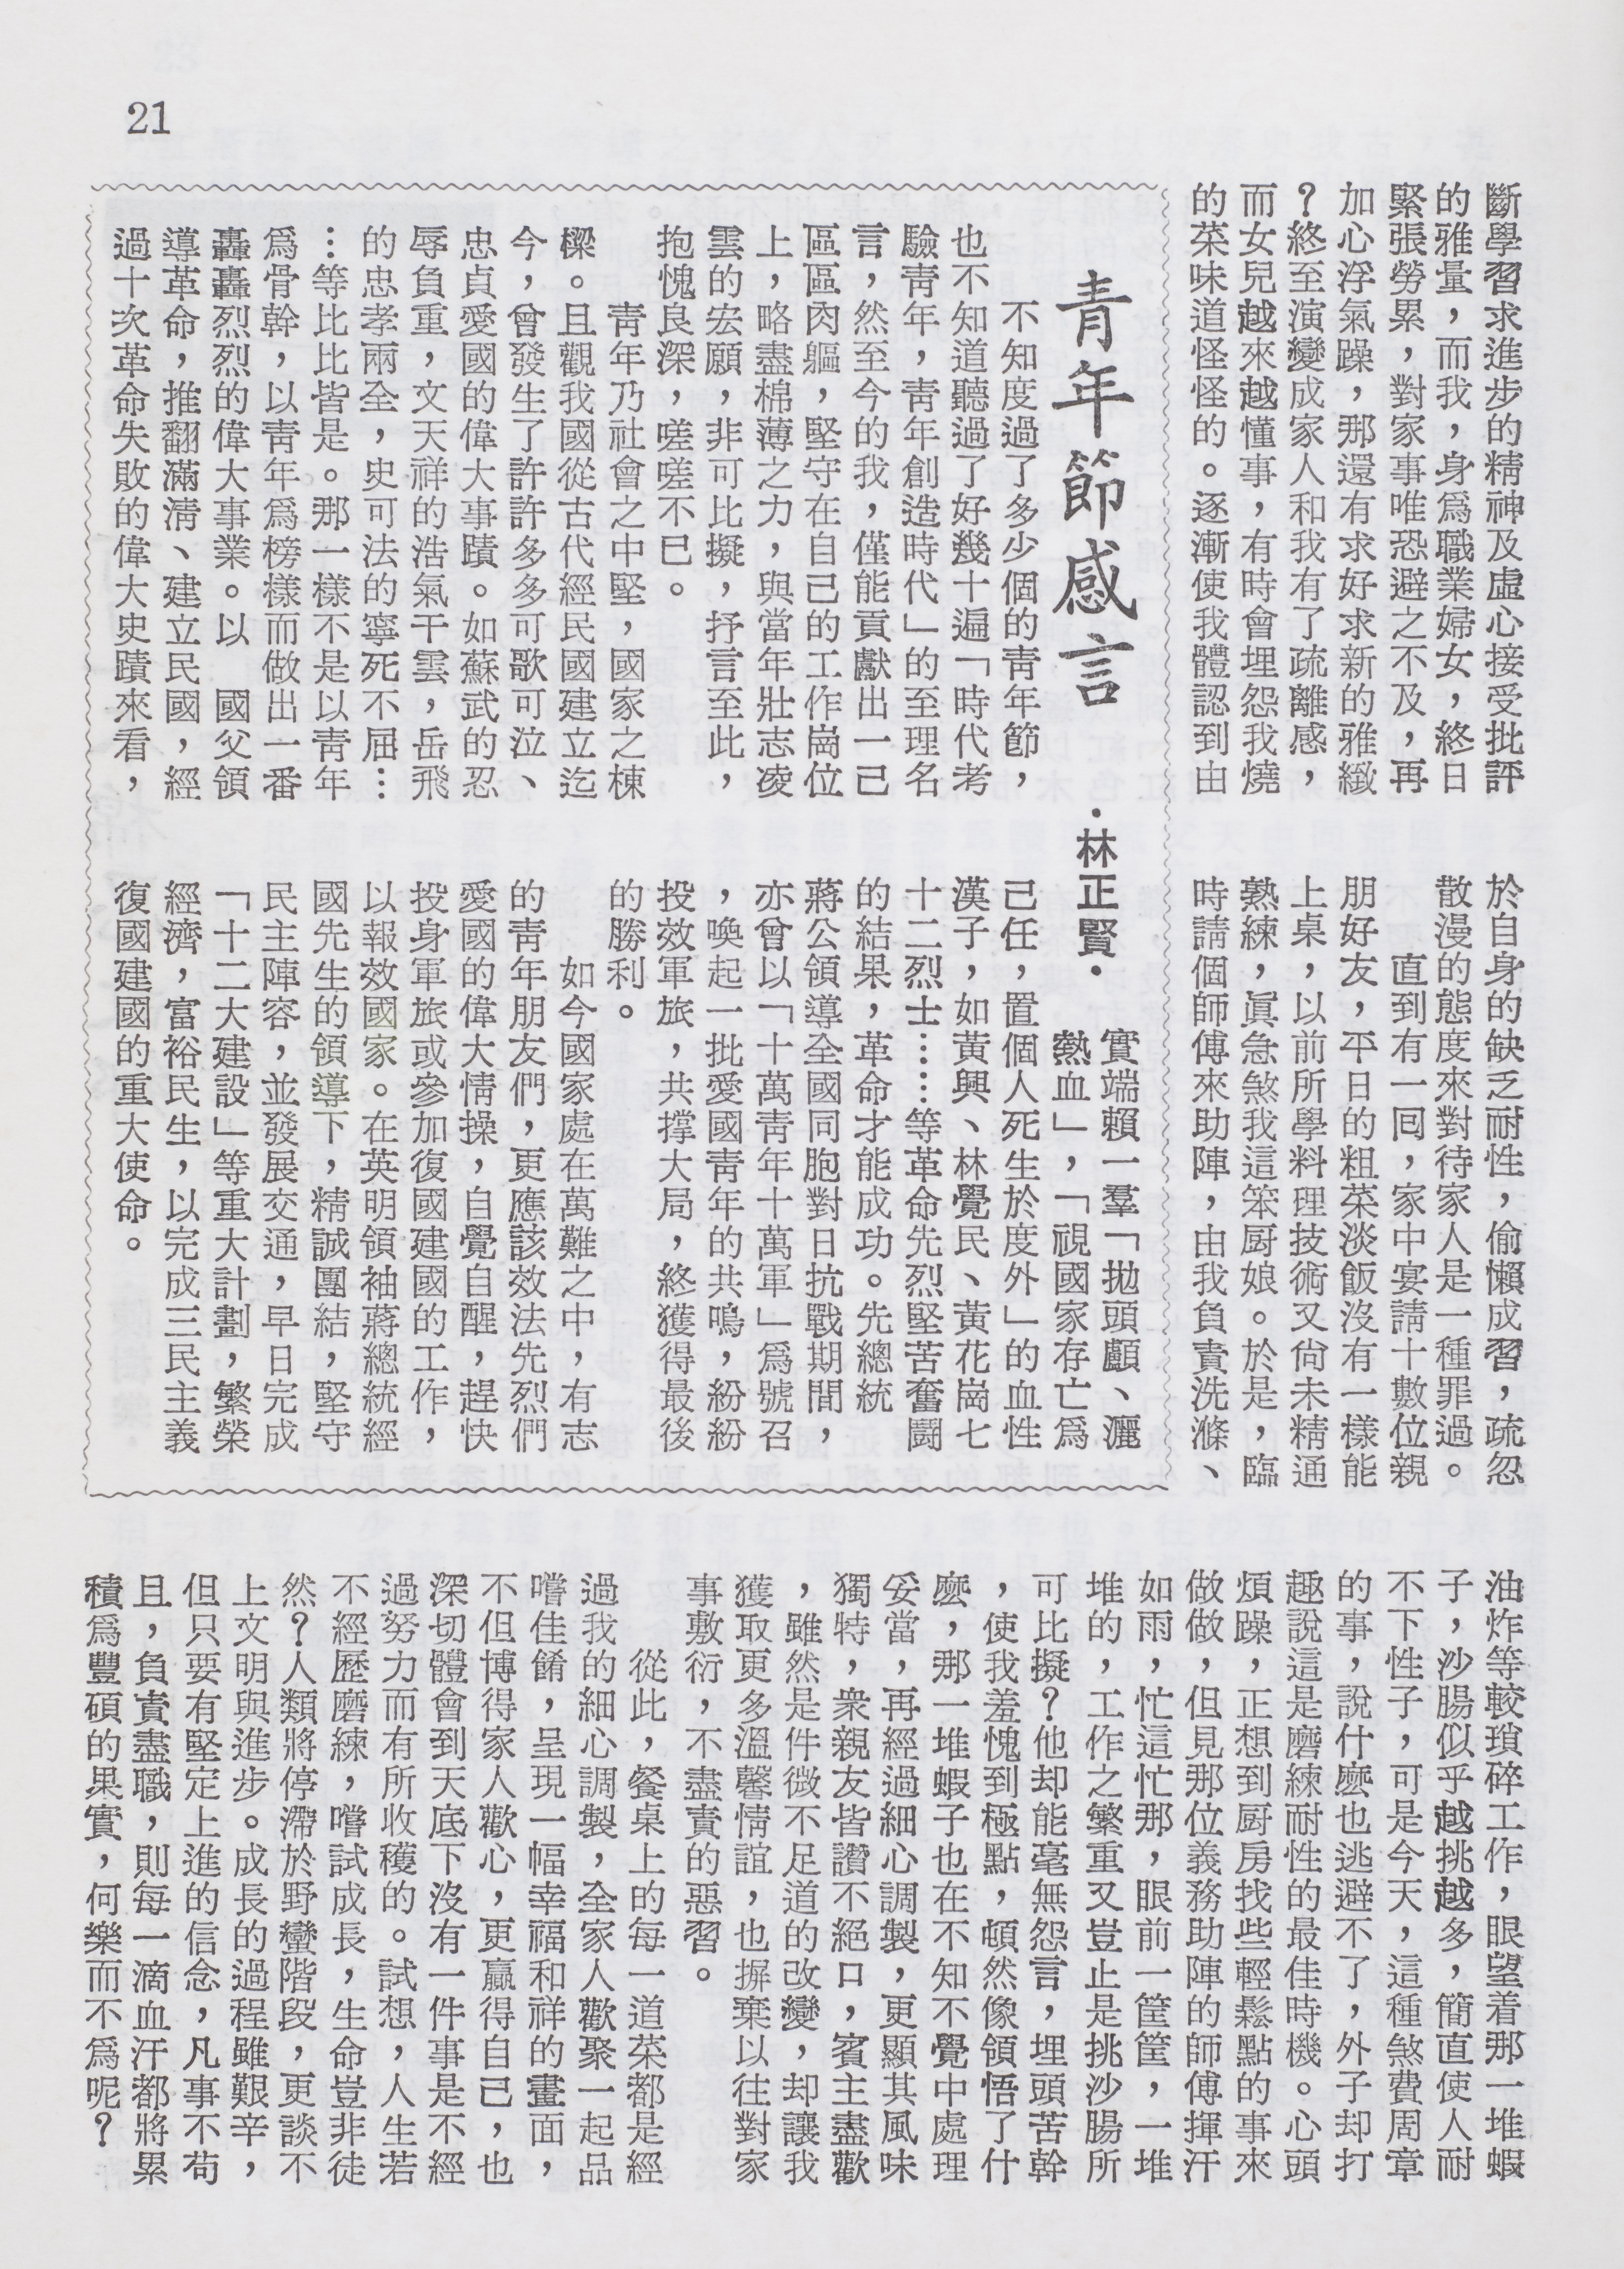 21
斷學習求進步的精神及虛心接受批評
的雅量，而我，身爲職業婦女，終日
緊張勞累，對家事唯恐避之不及，再
加心浮氣躁，那還有求好求新的雅緻
？終至演變成家人和我有了疏離感，
而女兒越來越懂事，有時會埋怨我燒
的菜味道怪怪的。逐漸使我體認到由
於自身的缺乏耐性，偷懶成習，疏忽
散漫的態度來對待家人是一種罪過。
直到有一回，家中宴請十數位親
朋好友，平日的粗菜淡飯沒有一樣能
上桌，以前所學料理技術又尙未精通
熟練，眞急煞我這笨厨娘。於是，臨
時請個師傅來助陣，由我負責洗滌、
油炸等較瑣碎工作，眼望着那一堆蝦
子，沙腸似乎越挑越多，簡直使人耐
不下性子，可是今天，這種煞費周章
的事，說什麽也逃避不了，外子却打
趣說這是磨練耐性的最佳時機。心頭
煩躁，正想到厨房找些輕鬆點的事來
做做，但見那位義務助陣的師傅揮汗
如雨，忙這忙那，眼前一筐筐，一堆
堆的，工作之繁重又豈止是挑沙腸所
可比擬？他却能毫無怨言，埋頭苦幹
，使我羞愧到極點，頓然像領悟了什
麽，那一堆蝦子也在不知不覺中處理
妥當，再經過細心調製，更顯其風味
獨特，衆親友皆讚不絕口，賓主盡歡
，雖然是件微不足道的改變，却讓我
獲取更多溫馨情誼，也摒棄以往對家
事敷衍，不盡責的惡習。
從此，餐桌上的每一道菜都是經
過我的細心調製，全家人歡聚一起品
嚐佳餚，呈現一幅幸福和祥的畫面，
不但博得家人歡心，更贏得自己，也
深切體會到天底下沒有一件事是不經
過努力而有所收穫的。試想，人生若
不經歷磨練，嚐試成長，生命豈非徒
然？人類將停滯於野蠻階段，更談不
上文明與進步。成長的過程雖艱辛，
但只要有堅定上進的信念，凡事不苟
且，負責盡職，則每一滴血汗都將累
積爲豐碩的果實，何樂而不爲呢？
青年節感言
·林正賢·
不知度過了多少個的靑年節，
也不知道聽過了好幾十遍「時代考
驗靑年，靑年創造時代」的至理名
言，然至今的我，僅能貢獻出一己
區區肉軀，堅守在自己的工作崗位
上，略盡棉薄之力，與當年壯志凌
雲的宏願，非可比擬，抒言至此，
抱愧良深，嗟嗟不已。
靑年乃社會之中堅，國家之棟
樑。且觀我國從古代經民國建立迄
今，曾發生了許許多多可歌可泣、
忠貞愛國的偉大事蹟。如蘇武的忍
辱負重，文天祥的浩氣干雲，岳飛
的忠孝兩全，史可法的寧死不屈…
…等比比皆是。那一樣不是以靑年
爲骨幹，以靑年爲榜樣而做出一番
轟轟烈烈的偉大事業。以　國父領
導革命，推翻滿淸、建立民國，經
過十次革命失敗的偉大史蹟來看，
實端賴一羣「拋頭顱、灑
熱血」，「視國家存亡爲
己任，置個人死生於度外」的血性
漢子，如黃興、林覺民、黃花崗七
十二烈士……等革命先烈堅苦奮鬪
的結果，革命才能成功。先總統
蔣公領導全國同胞對日抗戰期間，
亦曾以「十萬靑年十萬軍」爲號召
，喚起一批愛國靑年的共鳴，紛紛
投效軍旅，共撐大局，終獲得最後
的勝利。
如今國家處在萬難之中，有志
的靑年朋友們，更應該效法先烈們
愛國的偉大情操，自覺自醒，趕快
投身軍旅或參加復國建國的工作，
以報效國家。在英明領袖蔣總統經
國先生的領導下，精誠團結，堅守
民主陣容，並發展交通，早日完成
「十二大建設」等重大計劃，繁榮
經濟，富裕民生，以完成三民主義
復國建國的重大使命。